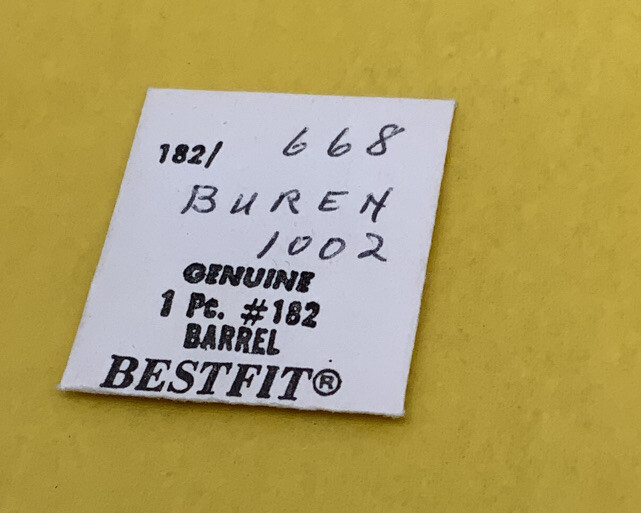 182/ 668
BUREN
1002
GENUINE
1 Pc. #182
BARREL
BESTFIT®